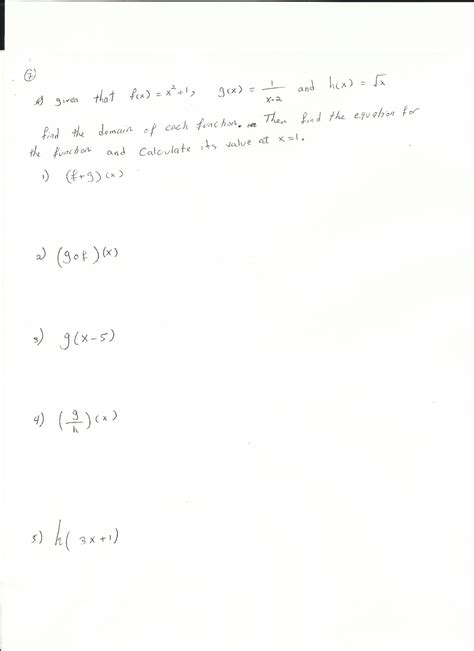 ⑦
A) given that f(x) = x²+1, g(x) = 1/(x-2) and h(x) = √x
find the domain of each function. Then find the equation for
the function and calculate its value at x=1.
1) (f+g)(x)
2) (gof)(x)
3) g(x-5)
4) (g/h)(x)
5) h(3x+1)